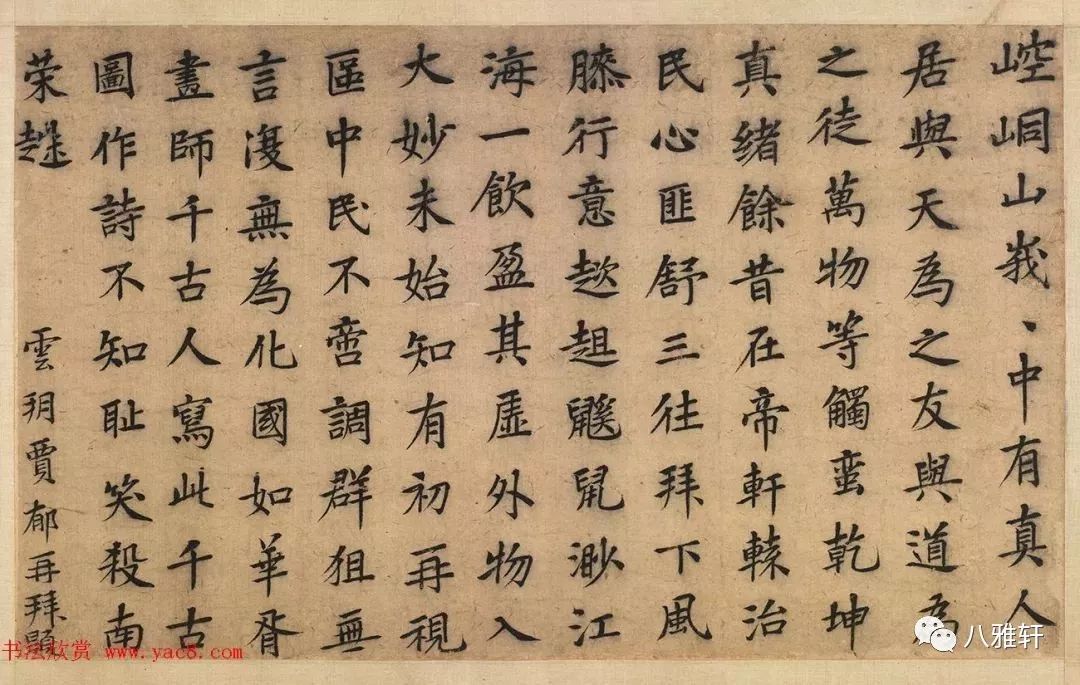 崆峒山峩、中有真人
居與天為之友與道為
之徒萬物等觸蛮乾坤
真緒餘昔在帝軒轅治
民心匪舒三往拜下風
膝行意趑趄鼷鼠渺江
海一飲盈其虛外物入
大妙未始知有初再視
區中民不啻調群狙無
言復無為化國如華胥
畫師千古人寫此千古
圖作詩不知耻笑殺南
荣趎
雲玥賈郁再拜題
书法欣赏 www.yac8.com
八雅轩